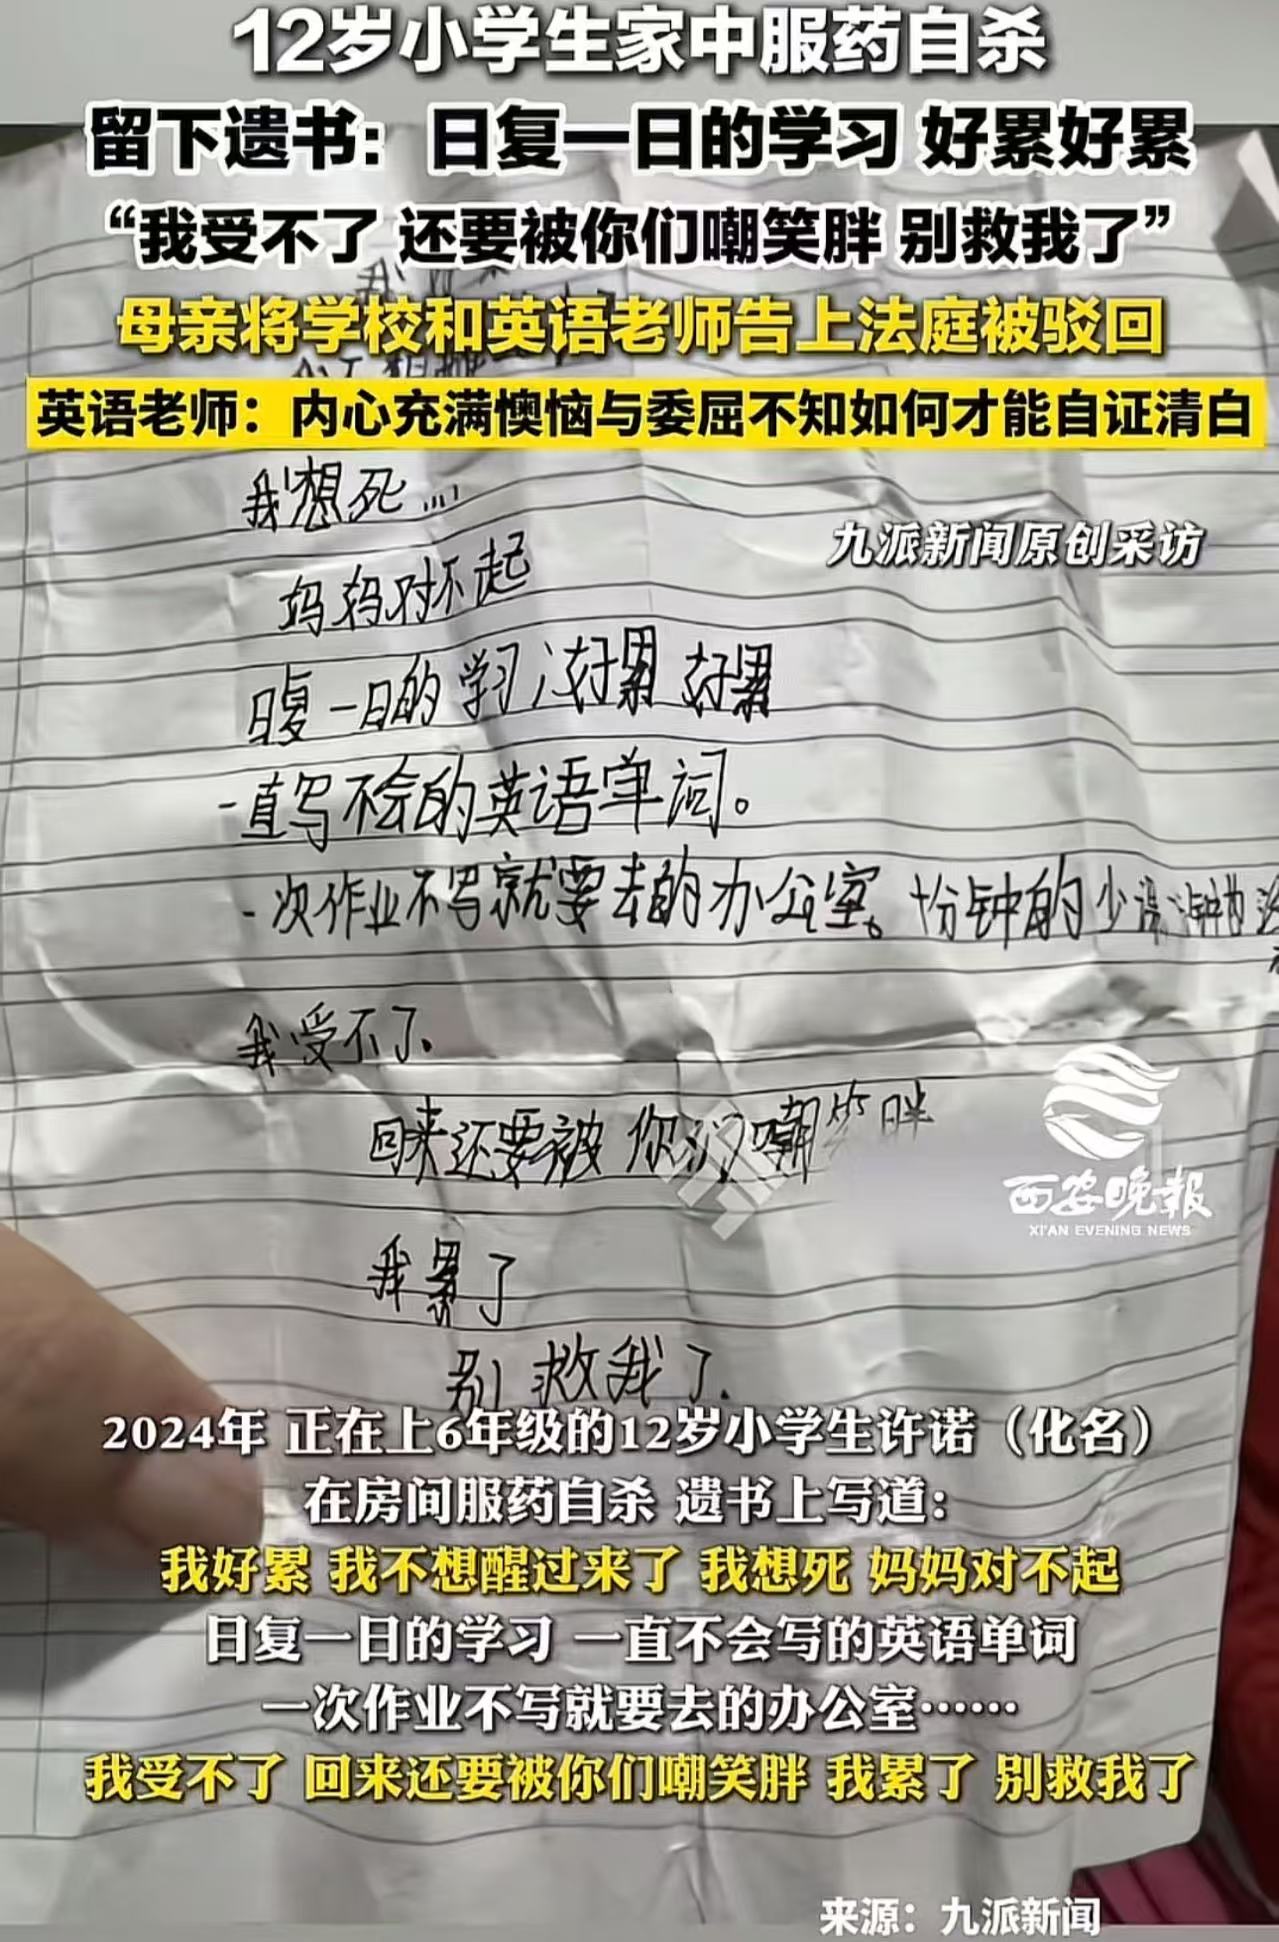 12岁小学生家中服药自杀
留下遗书：日复一日的学习 好累好累
“我受不了 还要被你们嘲笑胖 别救我了”
母亲将学校和英语老师告上法庭被驳回
英语老师：内心充满懊恼与委屈不知如何才能自证清白
我想死...
九派新闻原创采访
妈妈对不起
日复一日的学习,好累 好累
一直写不会的英语单词。
一次作业不写就要去的办公室。十分钟的少
我受不了.
回来还要被你们嘲笑胖
西安晚報
XI'AN EVENING NEWS
我累了
别救我了.
2024年 正在上6年级的12岁小学生许诺（化名）
在房间服药自杀 遗书上写道：
我好累 我不想醒过来了 我想死 妈妈对不起
日复一日的学习 一直不会写的英语单词
一次作业不写就要去的办公室……
我受不了 回来还要被你们嘲笑胖 我累了 别救我了
来源：九派新闻